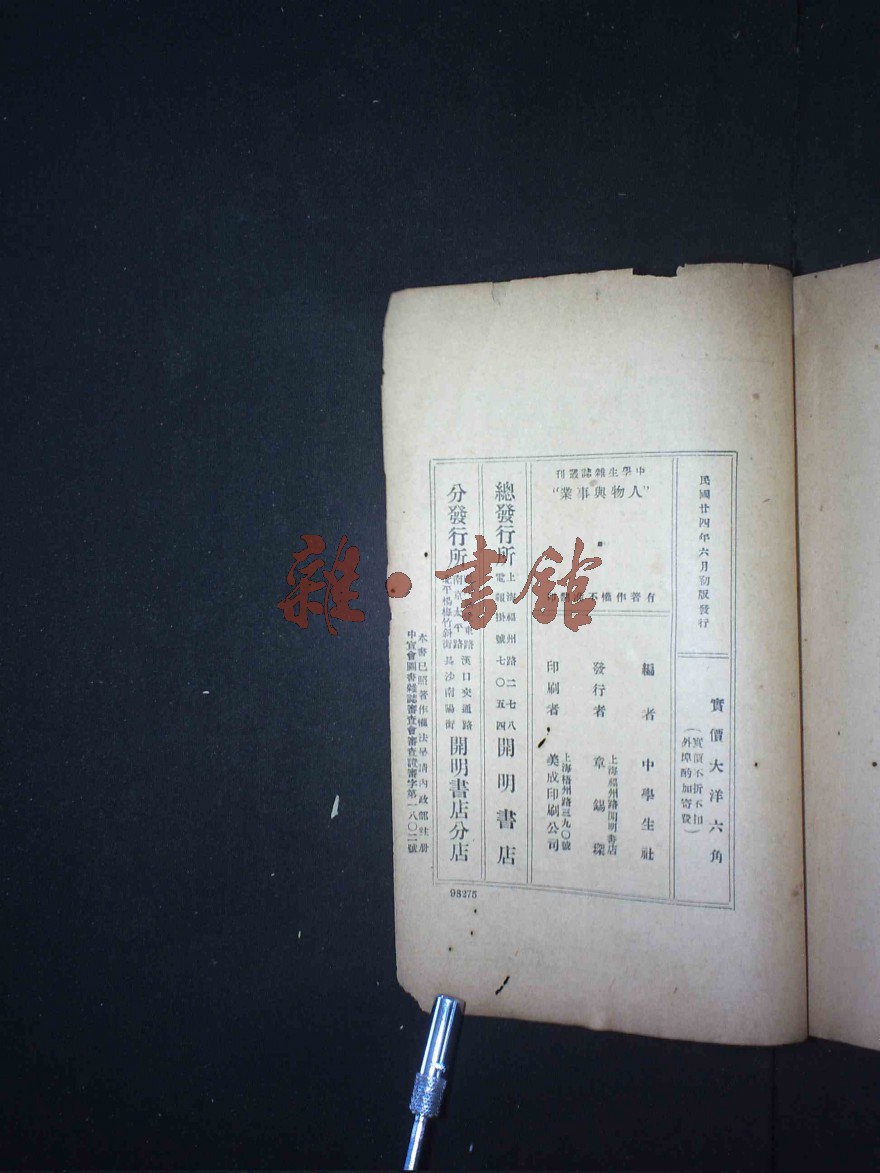 民國廿四年六月初版發行
實價大洋六角
(實價不折不扣
外埠酌加寄費)
中學生雜誌叢刊
"人物與事業"
有著作權不
編者 中學生社
發行者 章錫琛
上海福州路開明書店
印刷者 美成印刷公司
上海梧州路三九〇號
總發行所 開明書店
上海福州路二七八
電報掛號七〇五四
分發行所 開明書店分店
東路 漢口交通路
南京太平路 長沙南陽街
平楊梅竹斜街
本書已照著作權法呈請內政部註册
中宣會圖書雜誌審查會審查證審字第一八〇二號
98275
雜·書館